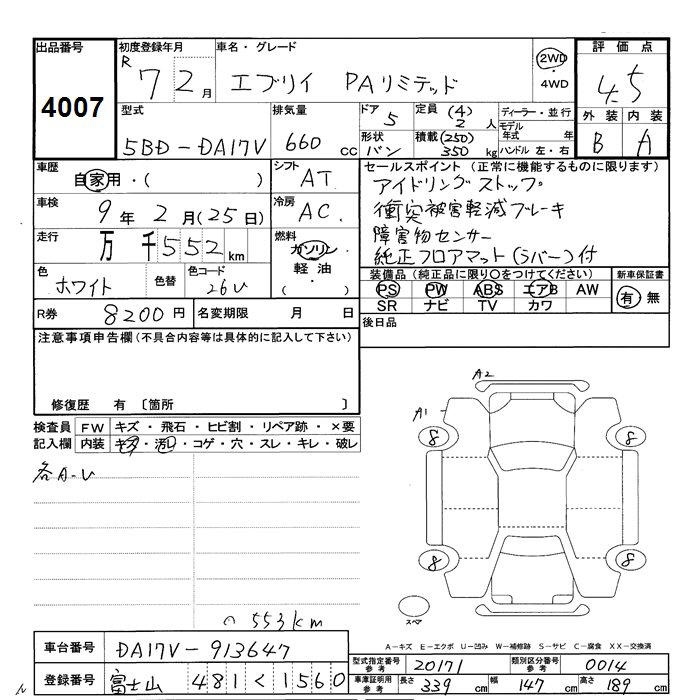 出品番号
4007
初度登録年月
R 7 2 月
車名・グレード
エブリイ PAリミテッド
2WD
・
4WD
評価点
4.5
外装 内装
B A
型式
5BD-DA17V
排気量
660 cc
ドア
5
形状
バン
定員 (4)
2 人
積載 (250)
350 kg
ディーラー・並行
モデル年式 年
ハンドル 左・右
車歴
自家用・( )
シフト
AT
車検
9年 2月(25日)
冷房
AC.
走行
万千552 km
燃料
ガソリン
軽油
( )
色
ホワイト
色替
色コード
26U
R券
8200 円
名変期限 月 日
セールスポイント (正常に機能するものに限ります)
アイドリングストップ
衝突被害軽減ブレーキ
障害物センサー
純正フロアマット(ラバー)付
装備品(純正品に限り○をつけてください)
PS PW ABS エアB AW
SR ナビ TV カワ
新車保証書
有 無
後日品
注意事項申告欄(不具合内容等は具体的に記入して下さい)
修復歴 有 〔箇所 〕
検査員記入欄
FW キズ・飛石・ヒビ割・リペア跡・×要
内装 キズ・汚レ・コゲ・穴・スレ・キレ・破レ
各A-U
553km
A2
A1
8 8
8 8
スペア
A-キズ E-エクボ U-凹み W-補修跡 S-サビ C-腐食 XX-交換済
車台番号
DA17V-913647
登録番号
富士山 481 く 1560
型式指定番号 参考
20171
類別区分番号 参考
0014
車庫証明用 参考
長さ 339 cm 幅 147 cm 高さ 189 cm